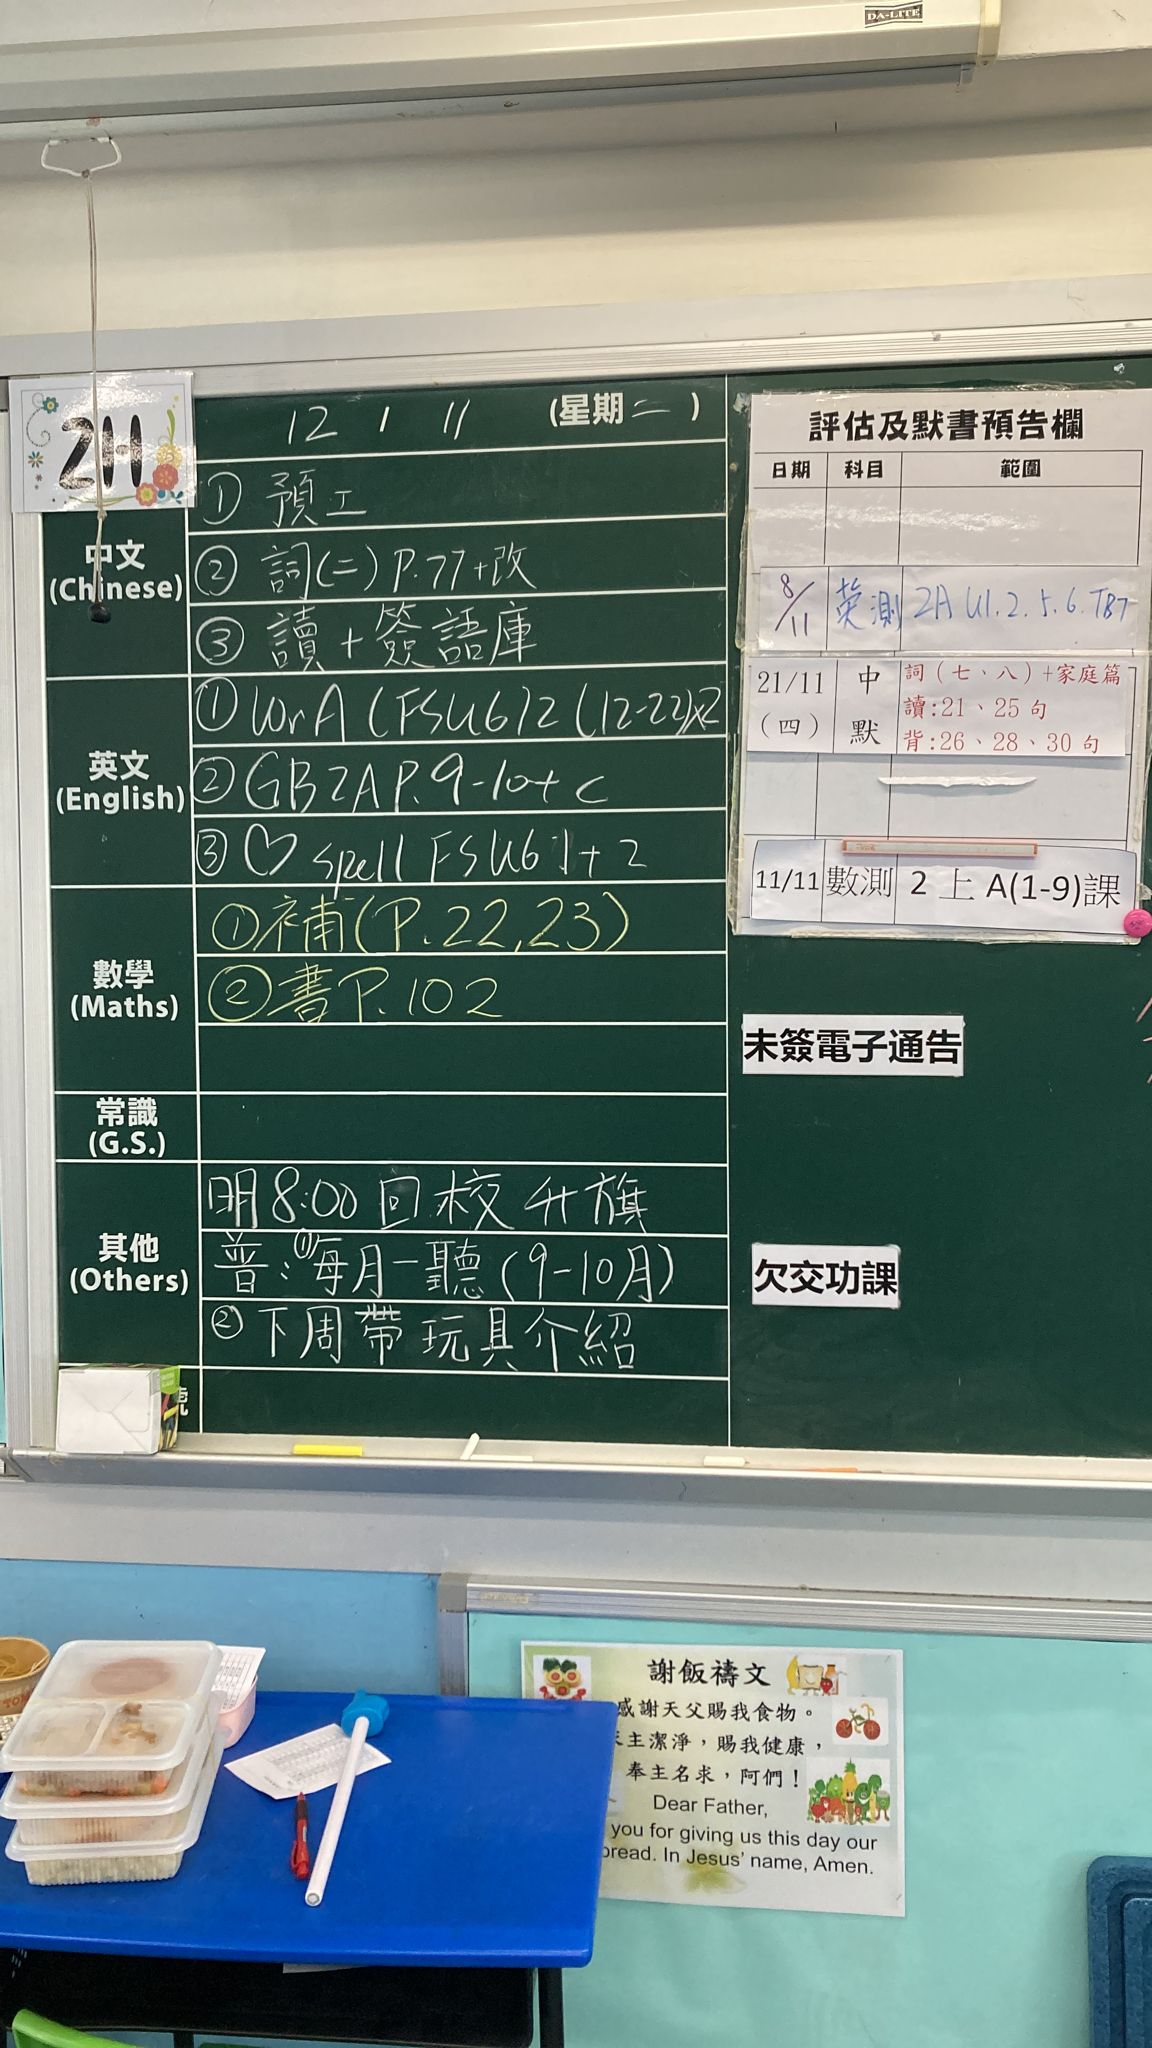 DA-LITE
2H
12 / 11 (星期二)
中文
(Chinese)
① 預工
② 詞(二) P.77+改
③ 讀+簽語庫
英文
(English)
① WrA (FSU6)2 (12-22)x2
② GB2A P.9-10+c
③ ♡ spell FSU6 1+2
數學
(Maths)
①補(P.22,23)
②書P.102
常識
(G.S.)
其他
(Others)
明8:00回校升旗
普:①每月一聽(9-10月)
②下周帶玩具介紹
號
評估及默書預告欄
日期 科目 範圍
8/11 英測 2A U1.2.5.6.TB7
21/11 (四) 中默 詞(七、八)+家庭篇
讀:21、25句
背:26、28、30句
11/11 數測 2上A(1-9)課
未簽電子通告
欠交功課
謝飯禱文
感謝天父賜我食物。
主潔淨,賜我健康,
奉主名求,阿們!
Dear Father,
you for giving us this day our
bread. In Jesus' name, Amen.